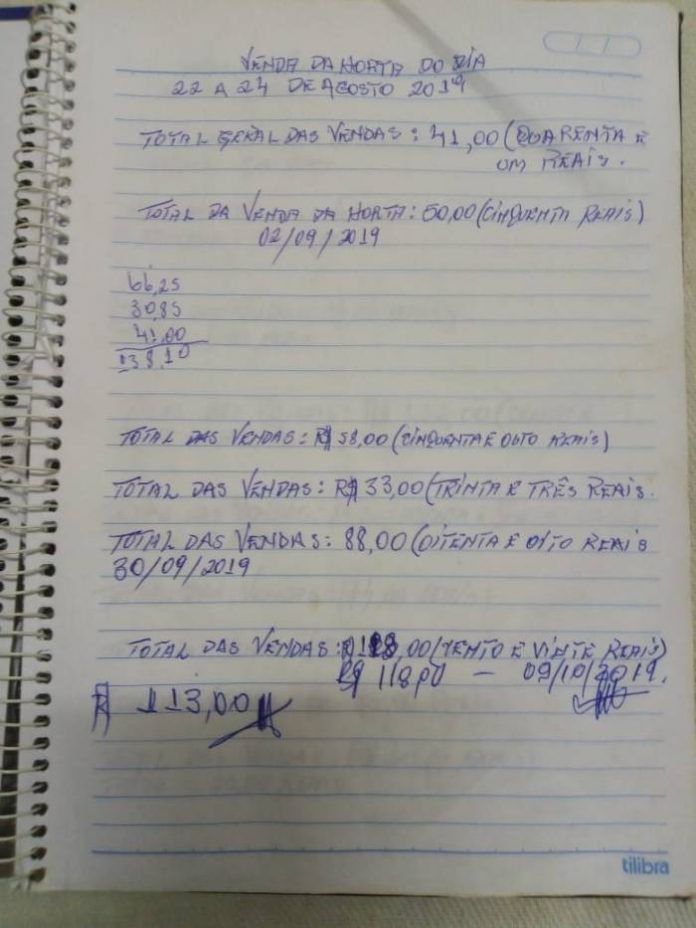 VENDA DA HORTA DO DIA
22 A 24 DE AGOSTO 2019
TOTAL GERAL DAS VENDAS: 41,00 (QUARENTA E
UM REAIS.
TOTAL DA VENDA DA HORTA: 50,00 (CINQUENTA REAIS)
02/09/2019
66,25
30,85
41,00
138,10
TOTAL DAS VENDAS: R$ 58,00 (CINQUENTA E OITO REAIS)
TOTAL DAS VENDAS: R$ 33,00 (TRINTA E TRÊS REAIS.
TOTAL DAS VENDAS: 88,00 (OITENTA E OITO REAIS
30/09/2019
TOTAL DAS VENDAS: 00 (CENTO E VINTE REAIS)
R$ 118,00 — 09/10/2019.
R$ 113,00
tilibra